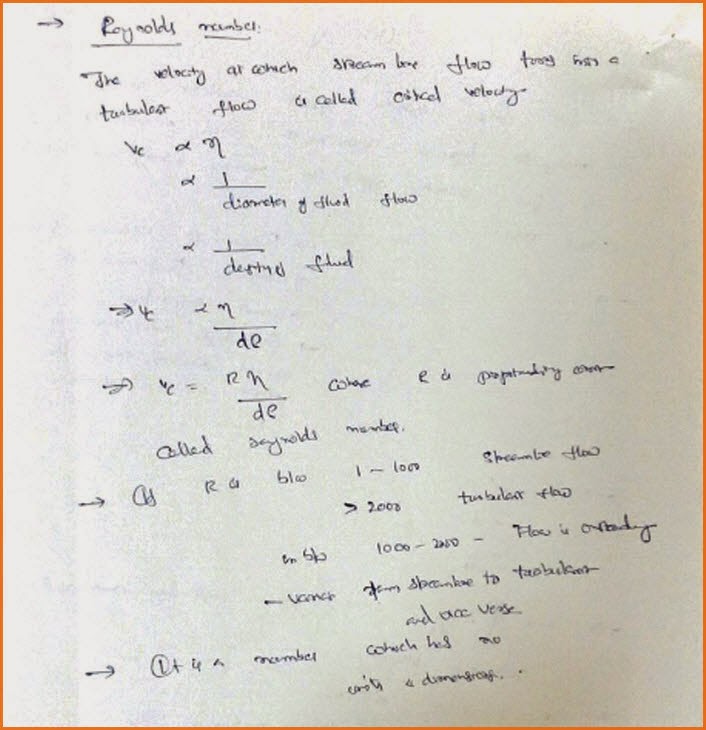 → Reynolds number:
The velocity at which stream line flow
turbulent flow is called critical velocity
Vc ∝ η
∝ 1
diameter of fluid flow
∝ 1
density of fluid
⇒ Vc ∝ η
dρ
⇒ Vc = Rη where R is
dρ
called Reynolds number.
→ If R is b/w 1 - 1000 streamline flow
> 2000 turbulent flow
in b/w 1000 - 2000 - Flow is
- from streamline to turbulent
and vice verse
→ It is a number which has no
units & dimensions.